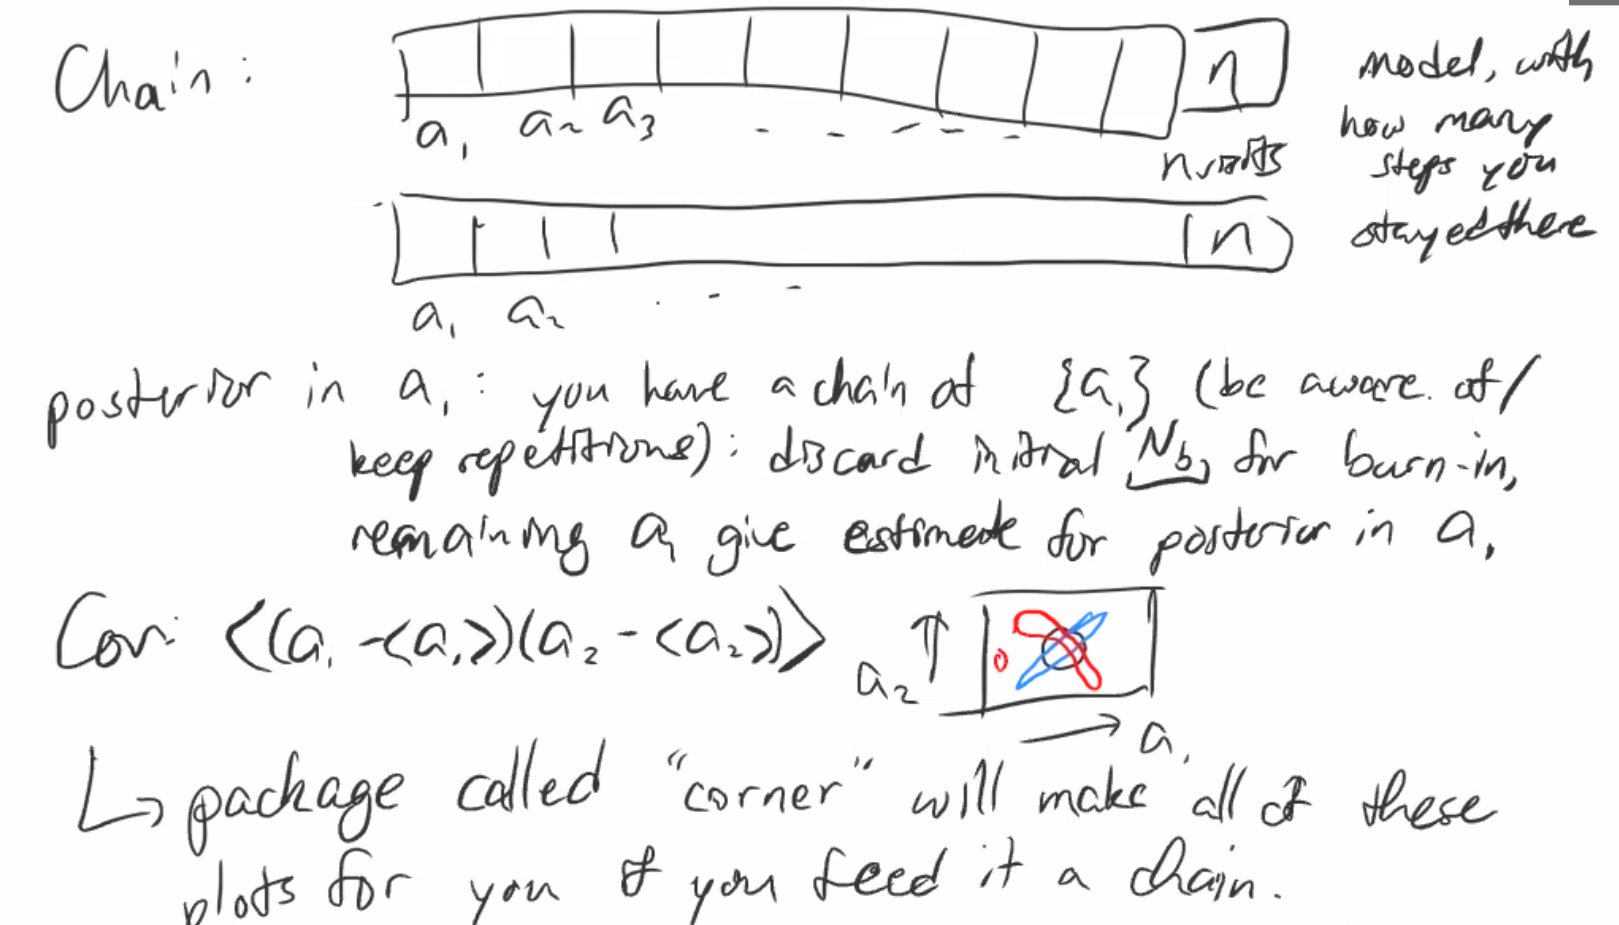 Chain:
n
model, with
how many
steps you
stayed there
a₁ a₂ a₃ - - - - -
n visits
n
a₁ a₂ . - -
posterior in a₁: you have a chain of {a₁} (be aware of/
keep repetitions): discard initial N_b, for burn-in,
remaining a₁ give estimate for posterior in a₁
Cov: <(a₁ -<a₁>)(a₂ -<a₂>)>
a₂
a₁
↳ package called "corner" will make all of these
plots for you if you feed it a chain.